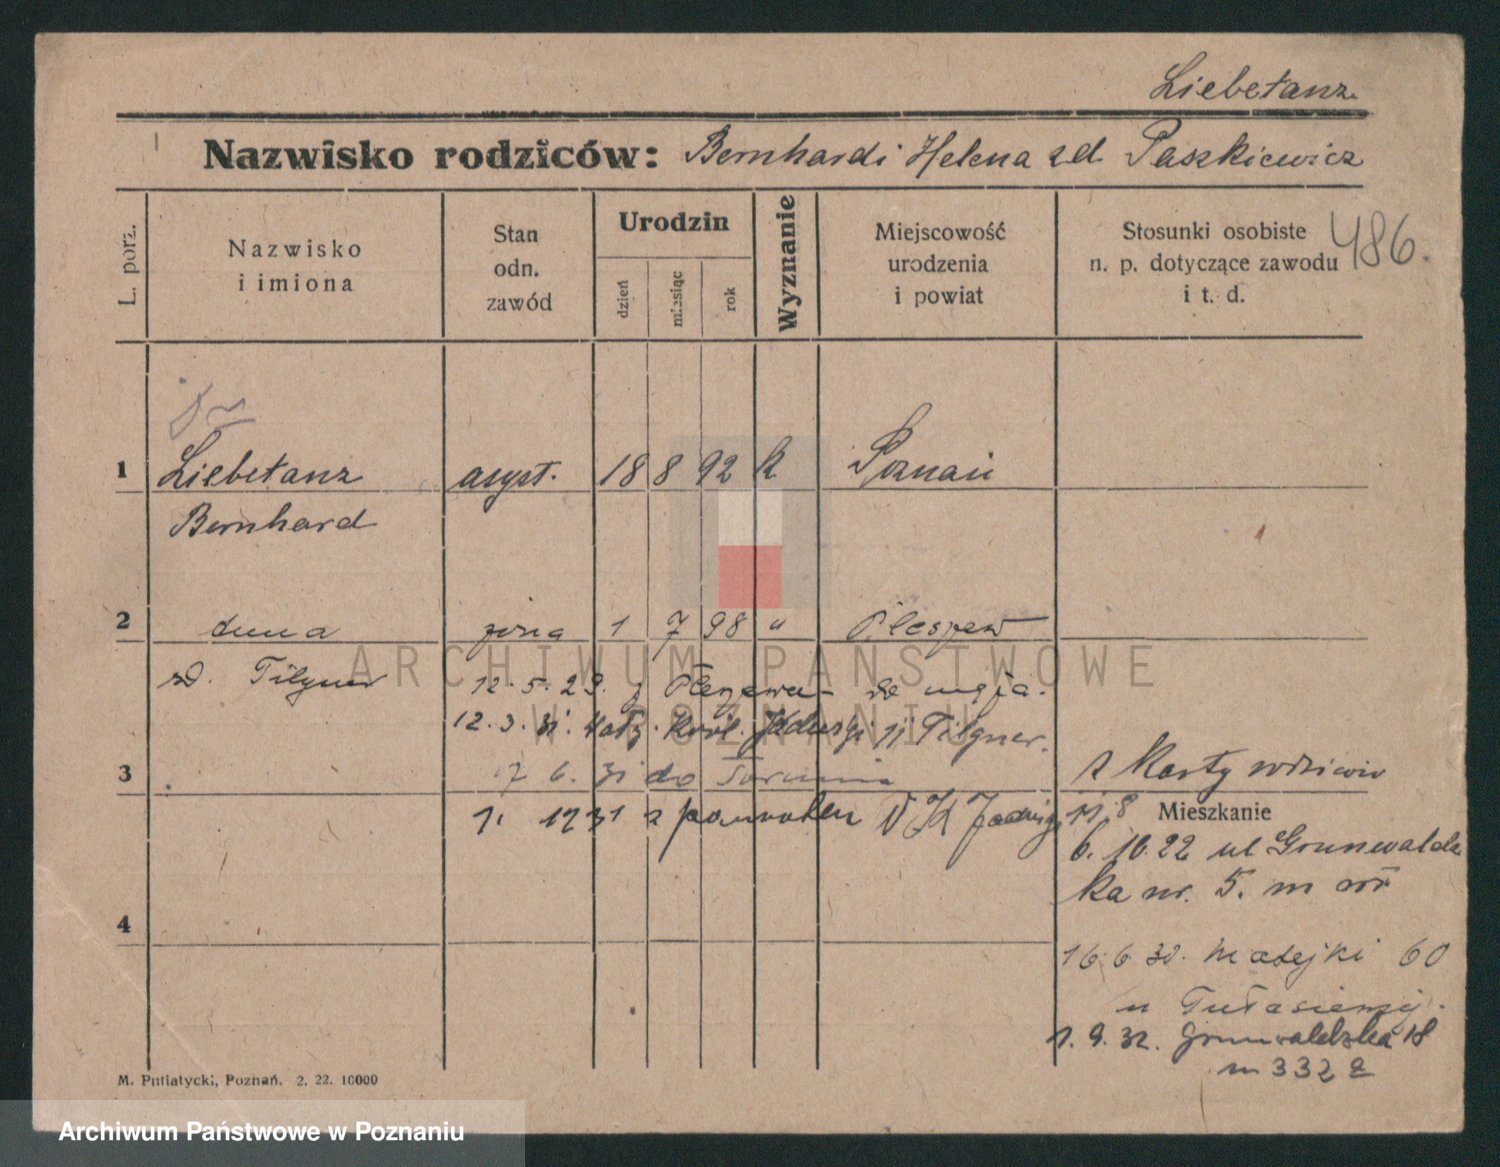 Liebetanz
Nazwisko rodziców: Bernhardi Helena zd. Paszkiewicz
L. porz.
Nazwisko i imiona
Stan odn. zawód
Urodzin
dzień
miesiąc
rok
Wyznanie
Miejscowość urodzenia i powiat
Stosunki osobiste n. p. dotyczące zawodu i t. d.
486.
1
Liebetanz asyst. 18 8 92 k Poznań
Bernhard
2
żona 1 7 98 " Pleszew
zd. Tilgner
12.5.29. z Pleszewa - do męża.
12.3.31. Król. Jadwigi 11 Tilgner.
3
7 6. 31 do
1. 12 31 z powrotem
z karty
11.8
Mieszkanie
6. 10.22 ul Grunwaldz
ka nr. 5. m
4
16.6.30. Matejki 60
u
1.9.32. Grunwaldzka 18
m 332
M. Putiatycki, Poznań. 2. 22. 10000
ARCHIWUM PAŃSTWOWE
W POZNANIU
Archiwum Państwowe w Poznaniu